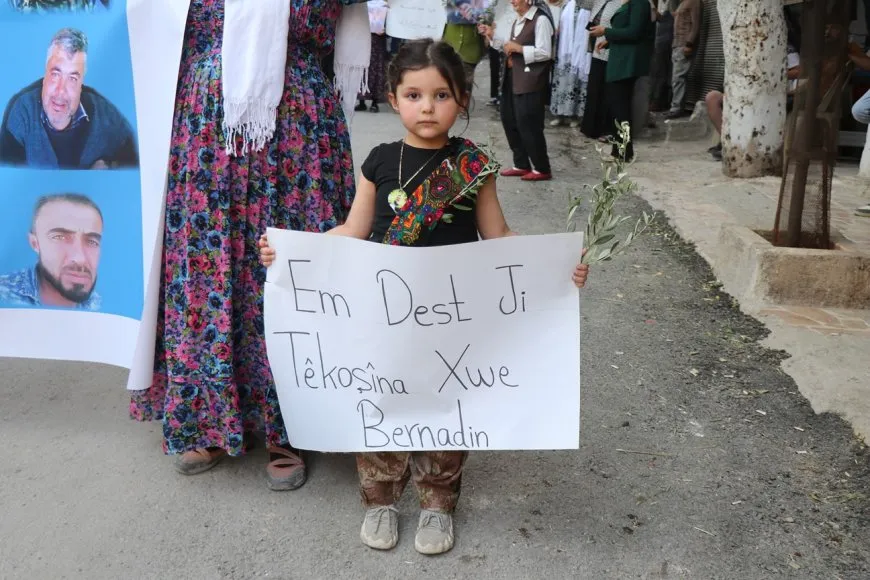 Em Dest Ji
Têkoşîna Xwe
Bernadin